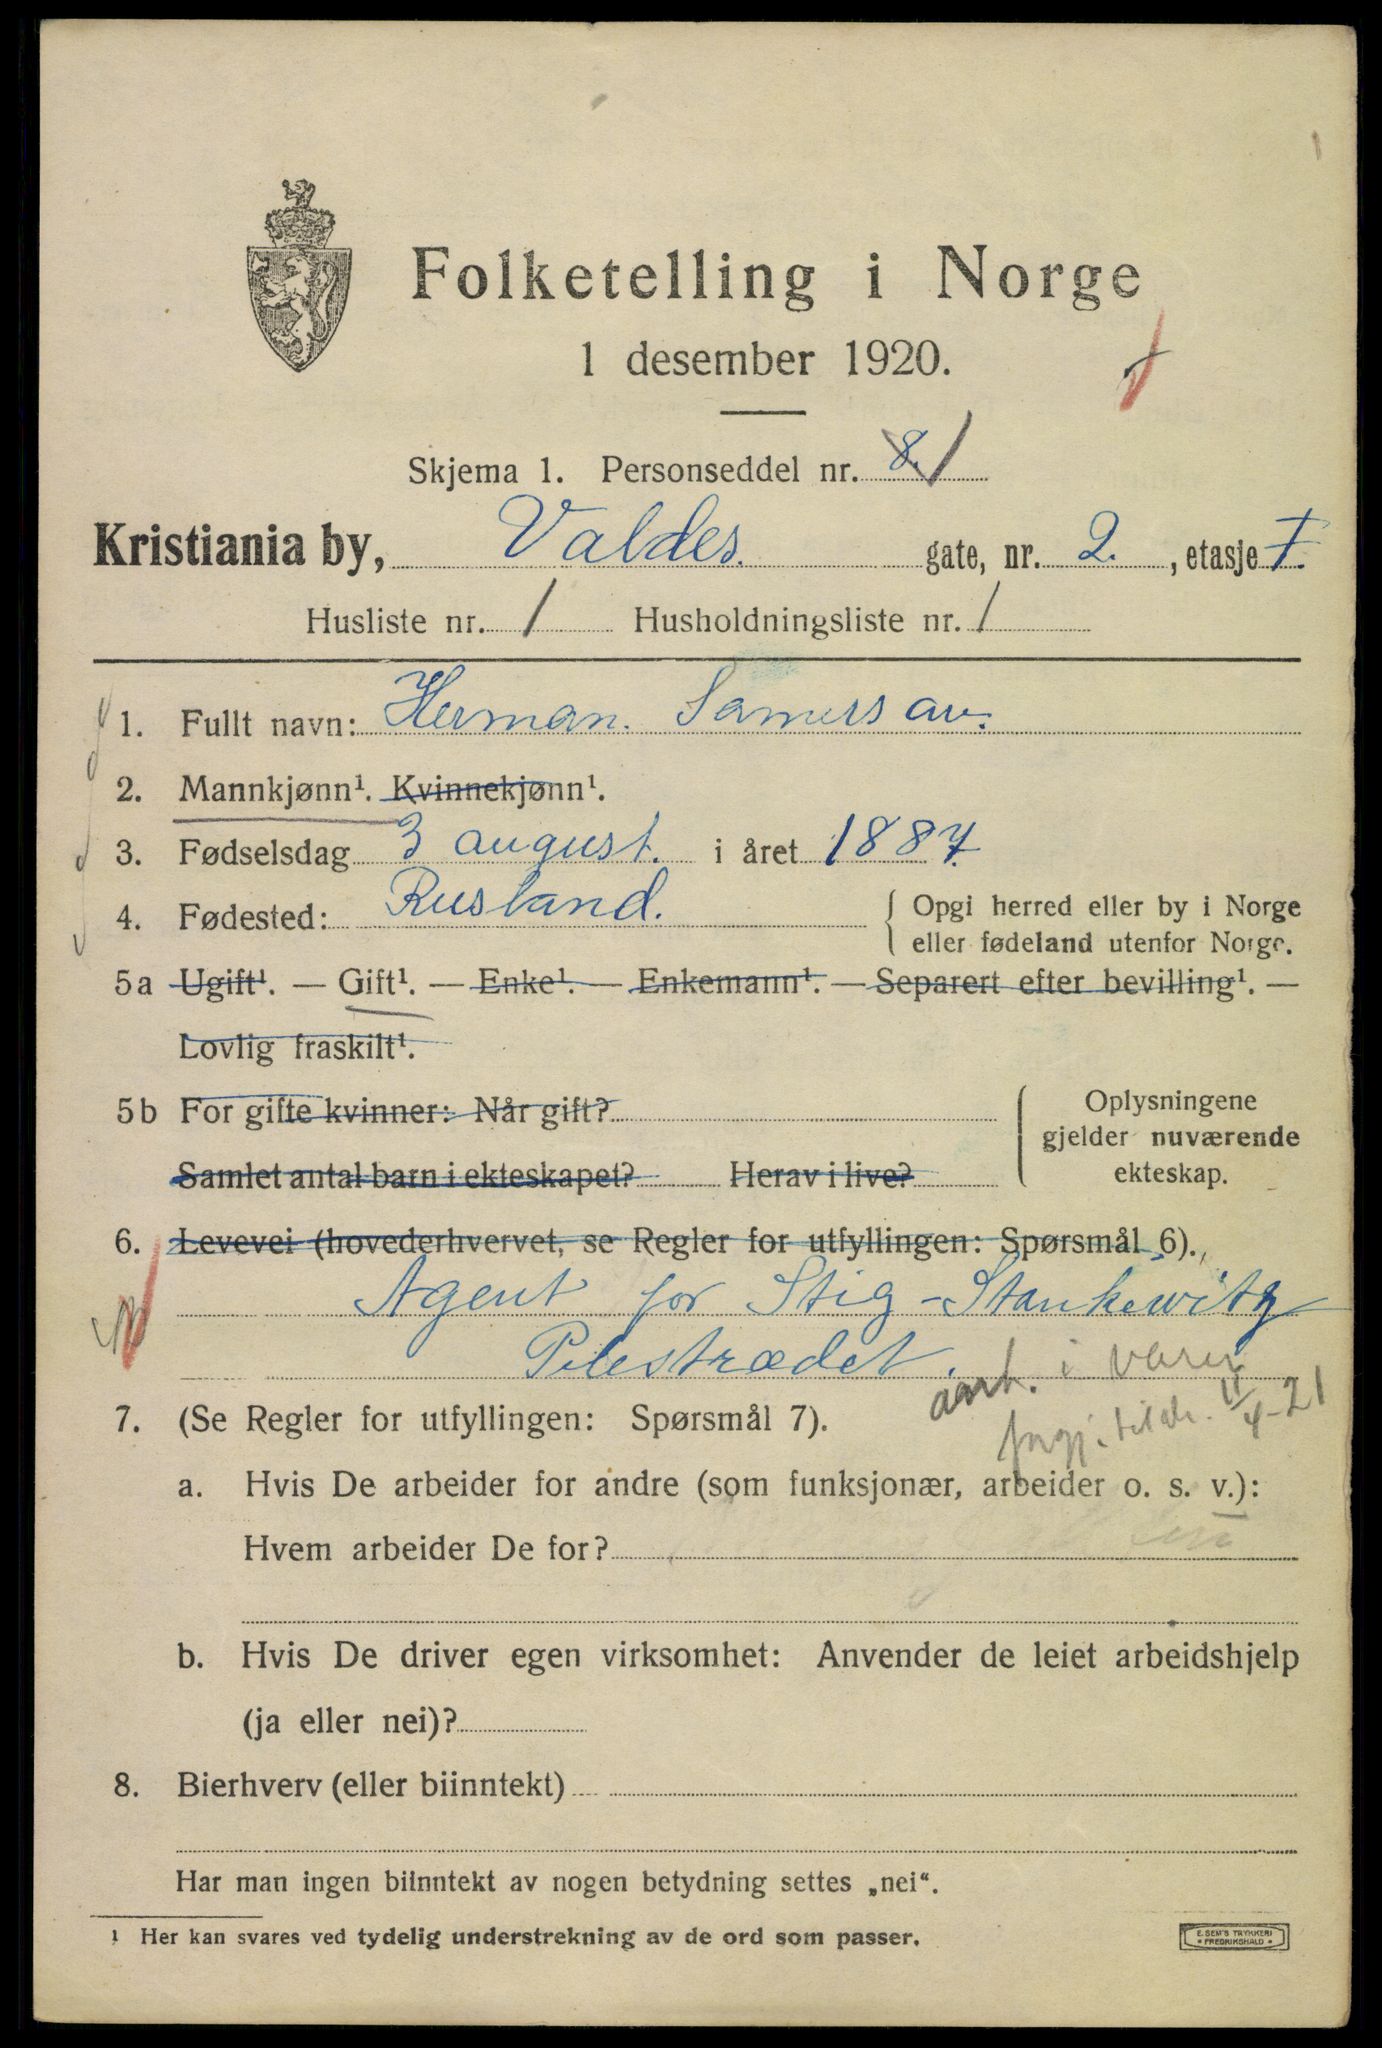 Folketelling i Norge
1 desember 1920.
Skjema 1. Personseddel nr. 8. 1
Kristiania by, Valdes. gate, nr. 2. , etasje I.
Husliste nr. 1 Husholdningsliste nr. 1
1. Fullt navn: Herman.
2. Mannkjønn¹. Kvinnekjønn¹.
3. Fødselsdag 3 august. i året 1887.
4. Fødested: Rusland. Opgi herred eller by i Norge
eller fødeland utenfor Norge.
5a Ugift¹. — Gift¹. — Enke¹. — Enkemann¹. — Separert efter bevilling¹. —
Lovlig fraskilt¹.
5b For gifte kvinner: Når gift? Oplysningene
gjelder nuværende
Samlet antal barn i ekteskapet? Herav i live? ekteskap.
6. Levevei (hovederhvervet, se Regler for utfyllingen: Spørsmål 6).
Agent for Stig - Stankewitz
Pilestrædet.
i varer
7. (Se Regler for utfyllingen: Spørsmål 7). 11/4-21
a. Hvis De arbeider for andre (som funksjonær, arbeider o. s. v.):
Hvem arbeider De for?
b. Hvis De driver egen virksomhet: Anvender de leiet arbeidshjelp
(ja eller nei)?
8. Bierhverv (eller biinntekt)
Har man ingen biinntekt av nogen betydning settes „nei“.
¹ Her kan svares ved tydelig understrekning av de ord som passer.
E. SEM'S TRYKKERI
• FREDRIKSHALD •